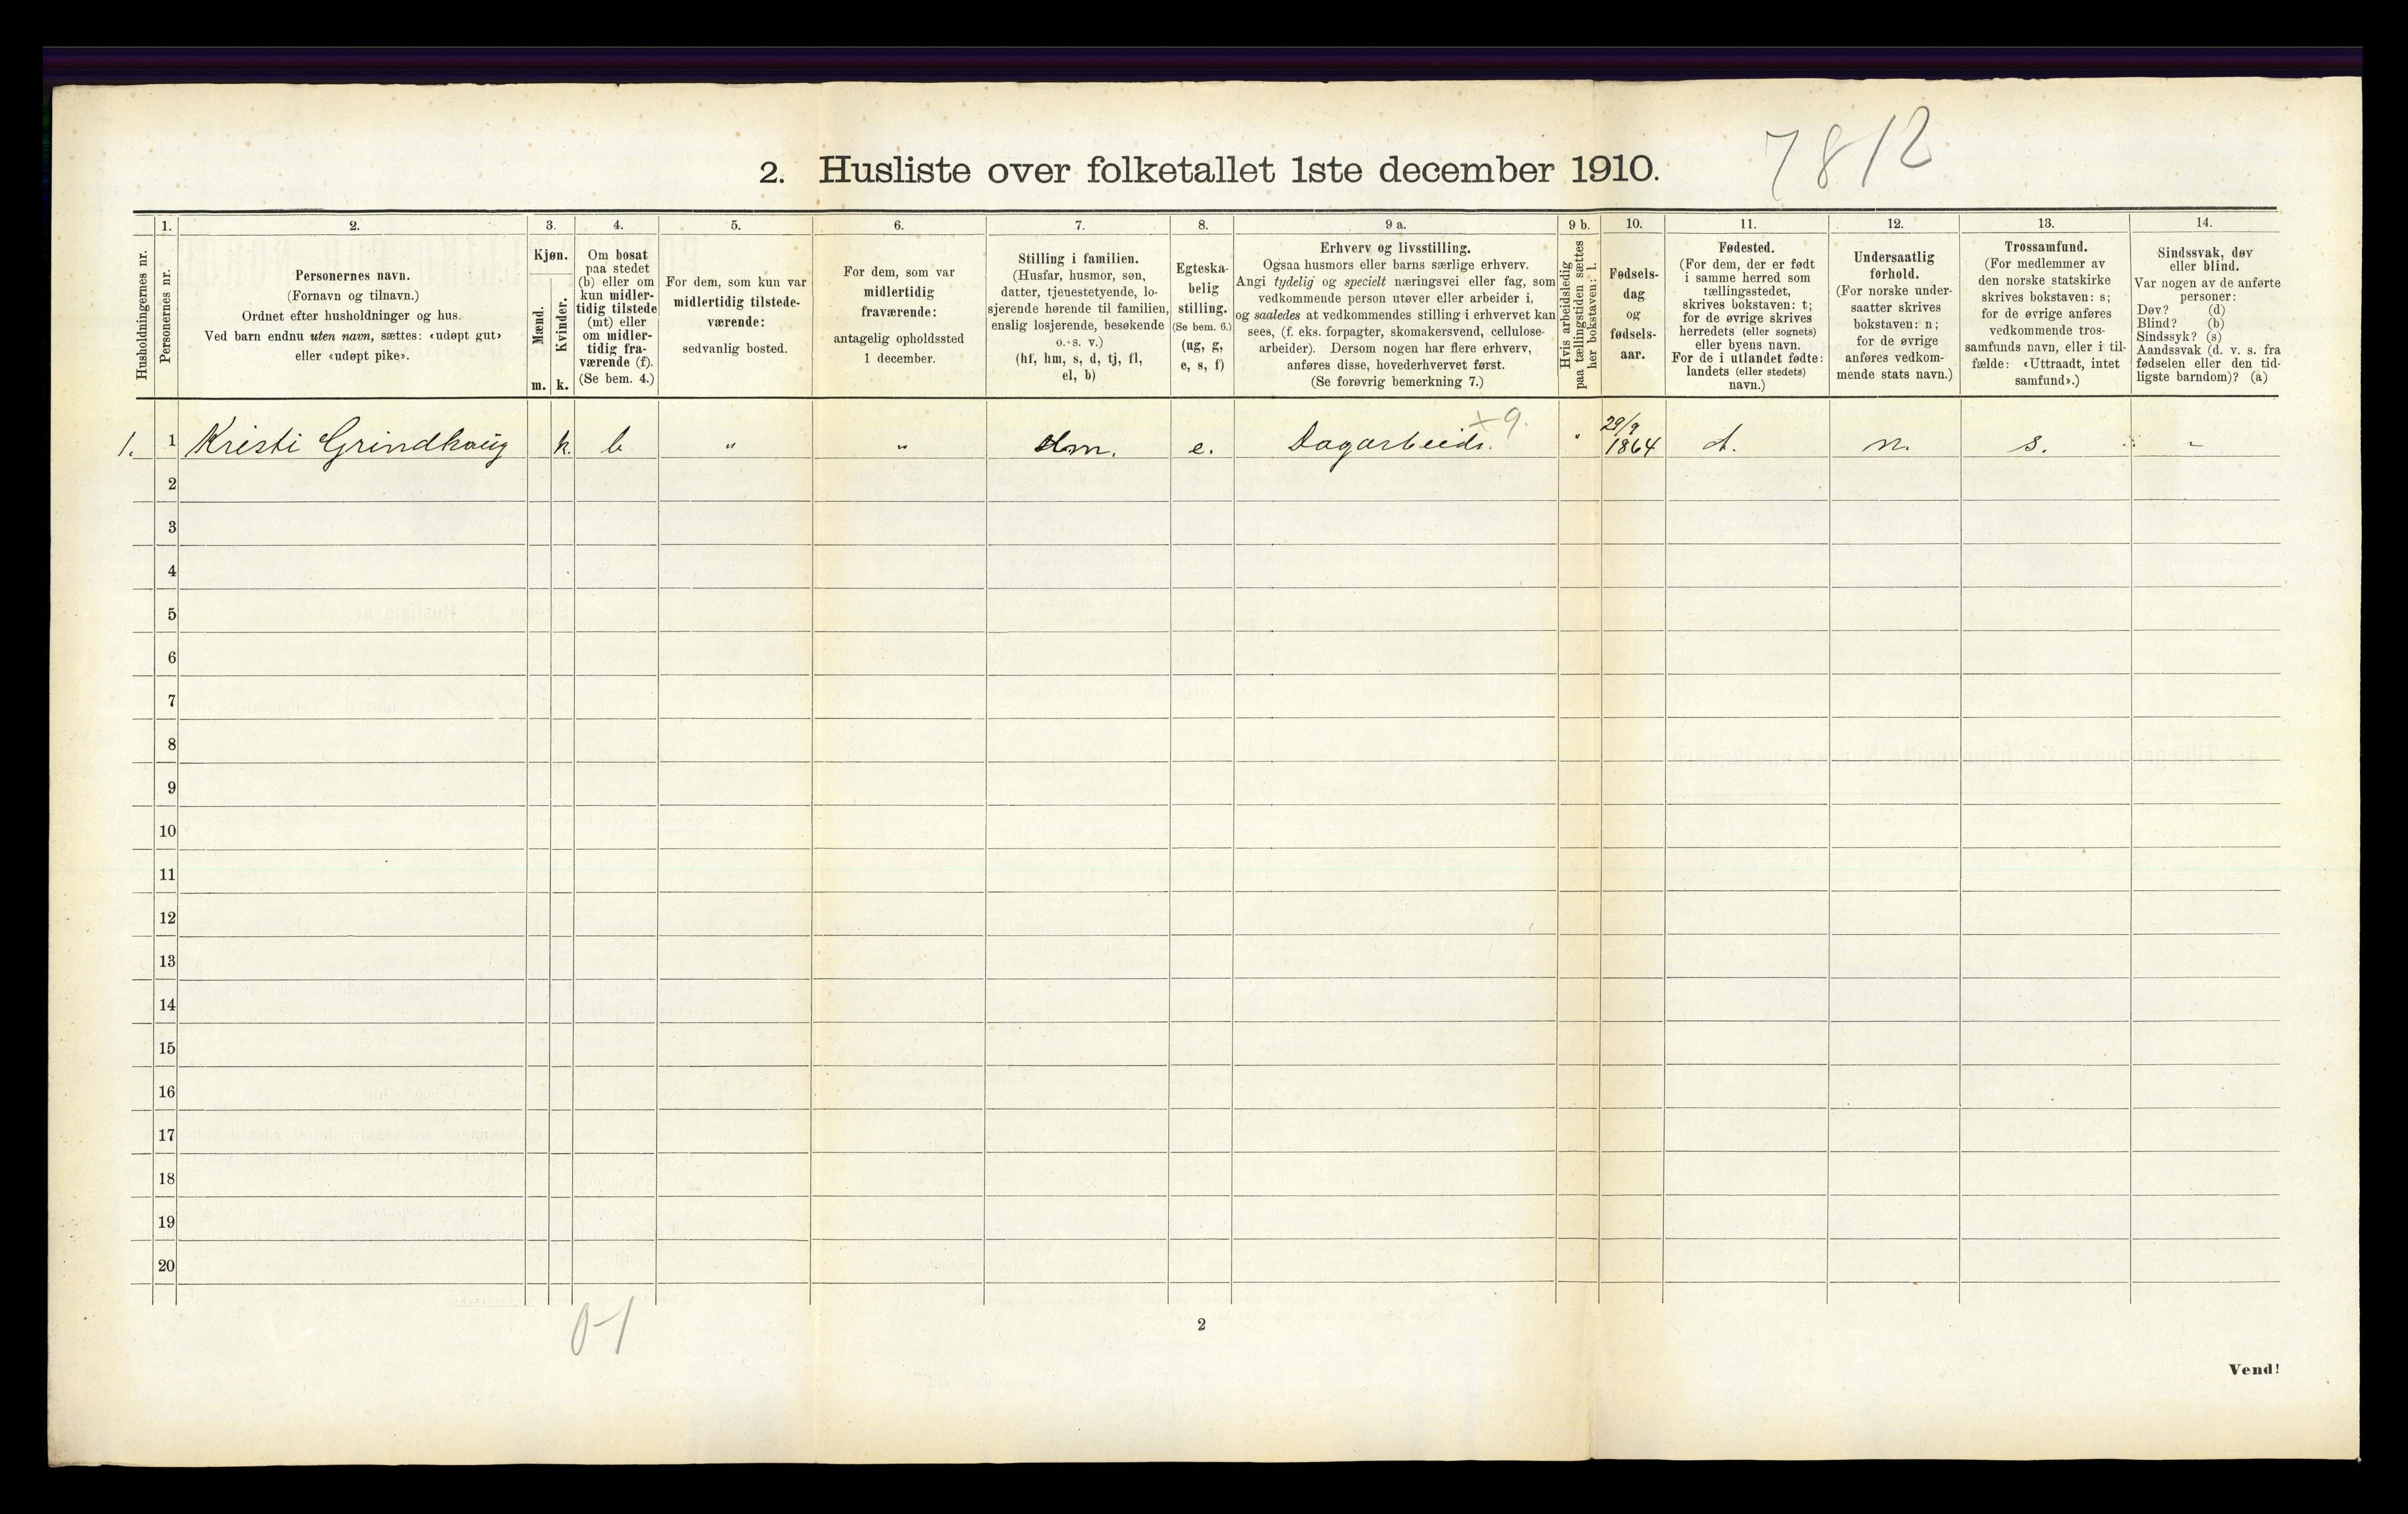 7812
2. Husliste over folketallet 1ste december 1910.
Husholdningernes nr.
1.
Personernes nr.
2.
Personernes navn.
(Fornavn og tilnavn.)
Ordnet efter husholdninger og hus.
Ved barn endnu uten navn, sættes: «udøpt gut»
eller «udøpt pike».
3.
Kjøn.
Mænd.
m.
Kvinder.
k.
4.
Om bosat
paa stedet
(b) eller om
kun midler-
tidig tilstede
(mt) eller
om midler-
tidig fra-
værende (f).
(Se bem. 4.)
5.
For dem, som kun var
midlertidig tilstede-
værende:
sedvanlig bosted.
6.
For dem, som var
midlertidig
fraværende:
antagelig opholdssted
1 december.
7.
Stilling i familien.
(Husfar, husmor, søn,
datter, tjenestetyende, lo-
sjerende hørende til familien,
enslig losjerende, besøkende
o. s. v.)
(hf, hm, s, d, tj, fl,
el, b)
8.
Egteska-
belig
stilling.
(Se bem. 6.)
(ug, g,
e, s, f)
9 a.
Erhverv og livsstilling.
Ogsaa husmors eller barns særlige erhverv.
Angi tydelig og specielt næringsvei eller fag, som
vedkommende person utøver eller arbeider i,
og saaledes at vedkommendes stilling i erhvervet kan
sees, (f. eks. forpagter, skomakersvend, cellulose-
arbeider). Dersom nogen har flere erhverv,
anføres disse, hovederhvervet først.
(Se forøvrig bemerkning 7.)
9 b.
Hvis arbeidsledig
paa tællingstiden sættes
her bokstaven: l.
10.
Fødsels-
dag
og
fødsels-
aar.
11.
Fødested.
(For dem, der er født
i samme herred som
tællingsstedet,
skrives bokstaven: t;
for de øvrige skrives
herredets (eller sognets)
eller byens navn.
For de i utlandet fødte:
landets (eller stedets)
navn.)
12.
Undersaatlig
forhold.
(For norske under-
saatter skrives
bokstaven: n;
for de øvrige
anføres vedkom-
mende stats navn.)
13.
Trossamfund.
(For medlemmer av
den norske statskirke
skrives bokstaven: s;
for de øvrige anføres
vedkommende tros-
samfunds navn, eller i til-
fælde: «Uttraadt, intet
samfund».)
14.
Sindssvak, døv
eller blind.
Var nogen av de anførte
personer:
Døv? (d)
Blind? (b)
Sindssyk? (s)
Aandssvak (d. v. s. fra
fødselen eller den tid-
ligste barndom)? (a)
1. 1 Kristi Grindhaug k. b " " hm. e. Dagarbeide. x9. " 29/9 1864 t. n. s. -
2
3
4
5
6
7
8
9
10
11
12
13
14
15
16
17
18
19
20
0-1
2
Vend!